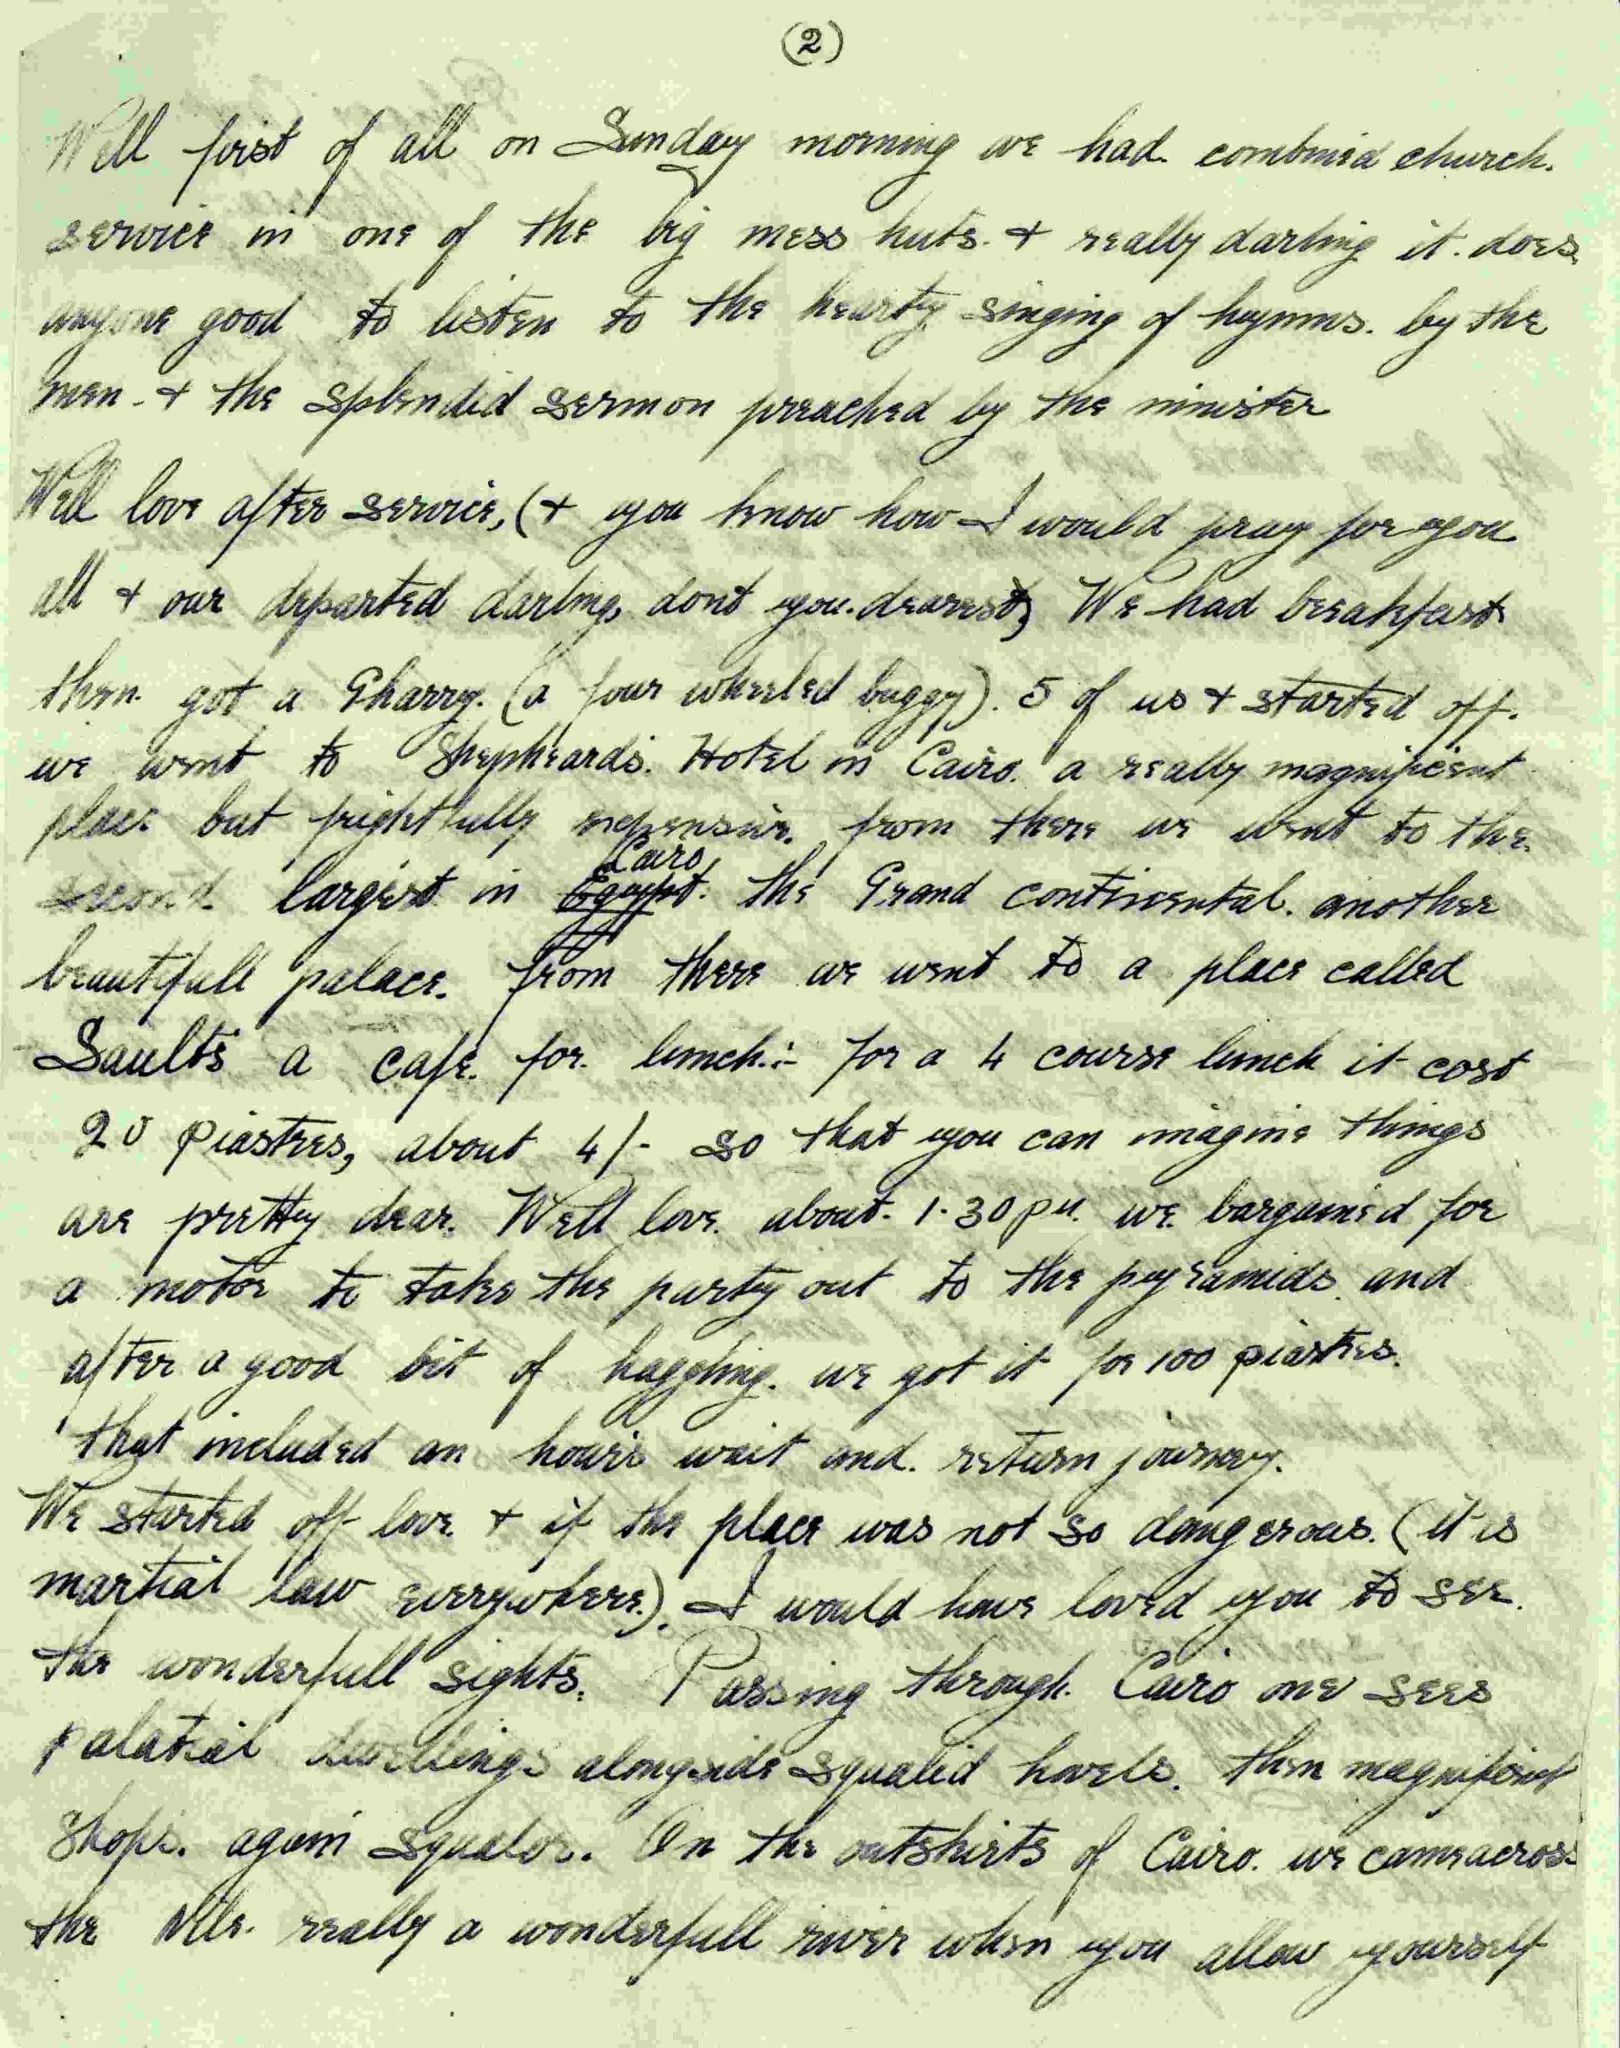 (2)
Well first of all on Sunday morning we had combined church.
service in one of the big mess huts. + really darling it. does
anyone good to listen to the hearty singing of hymns. by the
men. + the splendid sermon preached by the minister
Well love after service, (+ you know how I would pray for you
all + our departed darling, dont you. dearest) We had breakfast
then. got a Gharry. (a four wheeled buggy). 5 of us + started off.
we went to Shepheards. Hotel in Cairo. a really magnificent
place but frightfully expensive. from there we went to the.
second largest in Egypt. Cairo, the Grand continental. another
beautifull palace. from there we went to a place called
Saults a cafe. for. lunch.:- for a 4 course lunch it cost
20 Piastres, about 4/- so that you can imagine things
are pretty dear. Well love. about. 1.30 pm. we. bargained for
a motor to take the party out to the pyramids. and
after a good bit of haggling. we got it for 100 piastres.
that included an hours wait and. return journey.
We started off love. + if the place was not so dangerous. (it is
martial law everywhere.). I would have loved you to see.
the wonderfull sights. Passing through. Cairo one sees
palatial dwellings alongside squalid hovels. then magnificent
shops. again squalor. On the outskirts of Cairo. we came across
the Nile. really a wonderfull river when you allow yourself